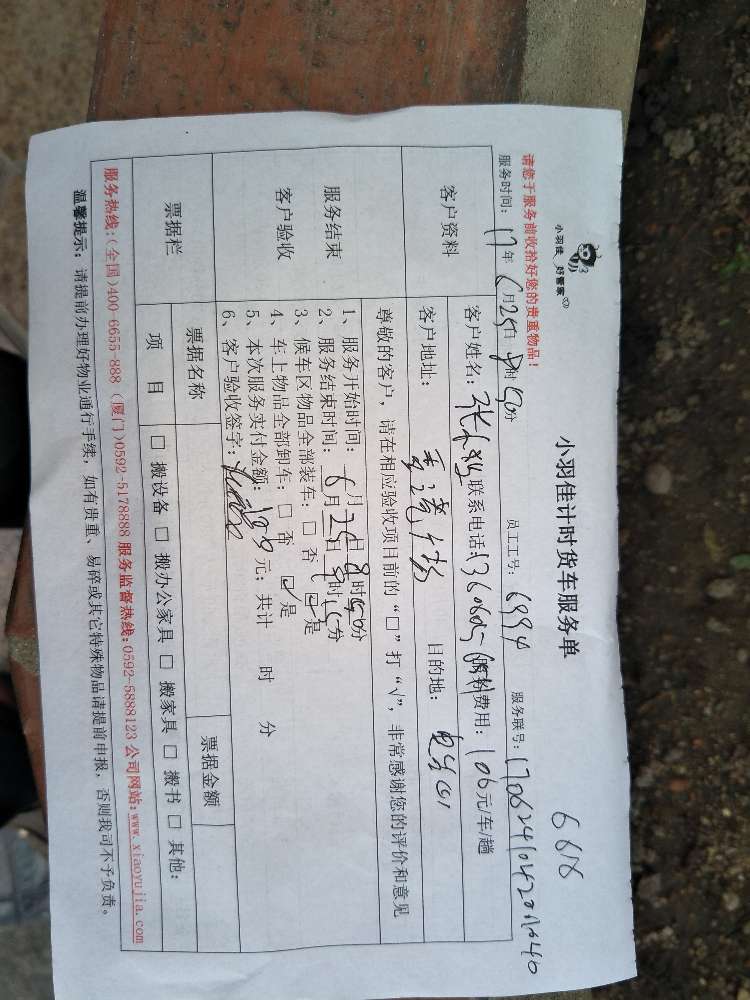 6618
小羽佳 好管家
小羽佳计时货车服务单
请您于服务前收拾好您的贵重物品!
服务时间: 17年6月25日8时50分 员工工号: 6994 服务联号:
客户资料
客户姓名: 联系电话: 费用: 100元/车/趟
客户地址: 目的地:
尊敬的客户,请在相应验收项目前的“□”打“√”,非常感谢您的评价和意见
服务结束
客户验收
1、服务开始时间: 6月25日8时50分
2、服务结束时间: 6月25日9时15分
3、候车区物品全部装车: □ 否 ☑ 是
4、车上物品全部卸车: □ 否 ☑ 是
5、本次服务实付金额: 元; 共计 时 分
6、客户验收签字:
票据栏
票据名称 票据金额
项 目 □ 搬设备 □ 搬办公家具 □ 搬家具 □ 搬书 □ 其他:
服务热线:(全国)400-6655-888 (厦门)0592-5178888 服务监督热线:0592-5888123 公司网站:www.xiaoyujia.com
温馨提示: 请提前办理好物业通行手续, 如有贵重、易碎或其它特殊物品请提前申报, 否则我司不予负责。